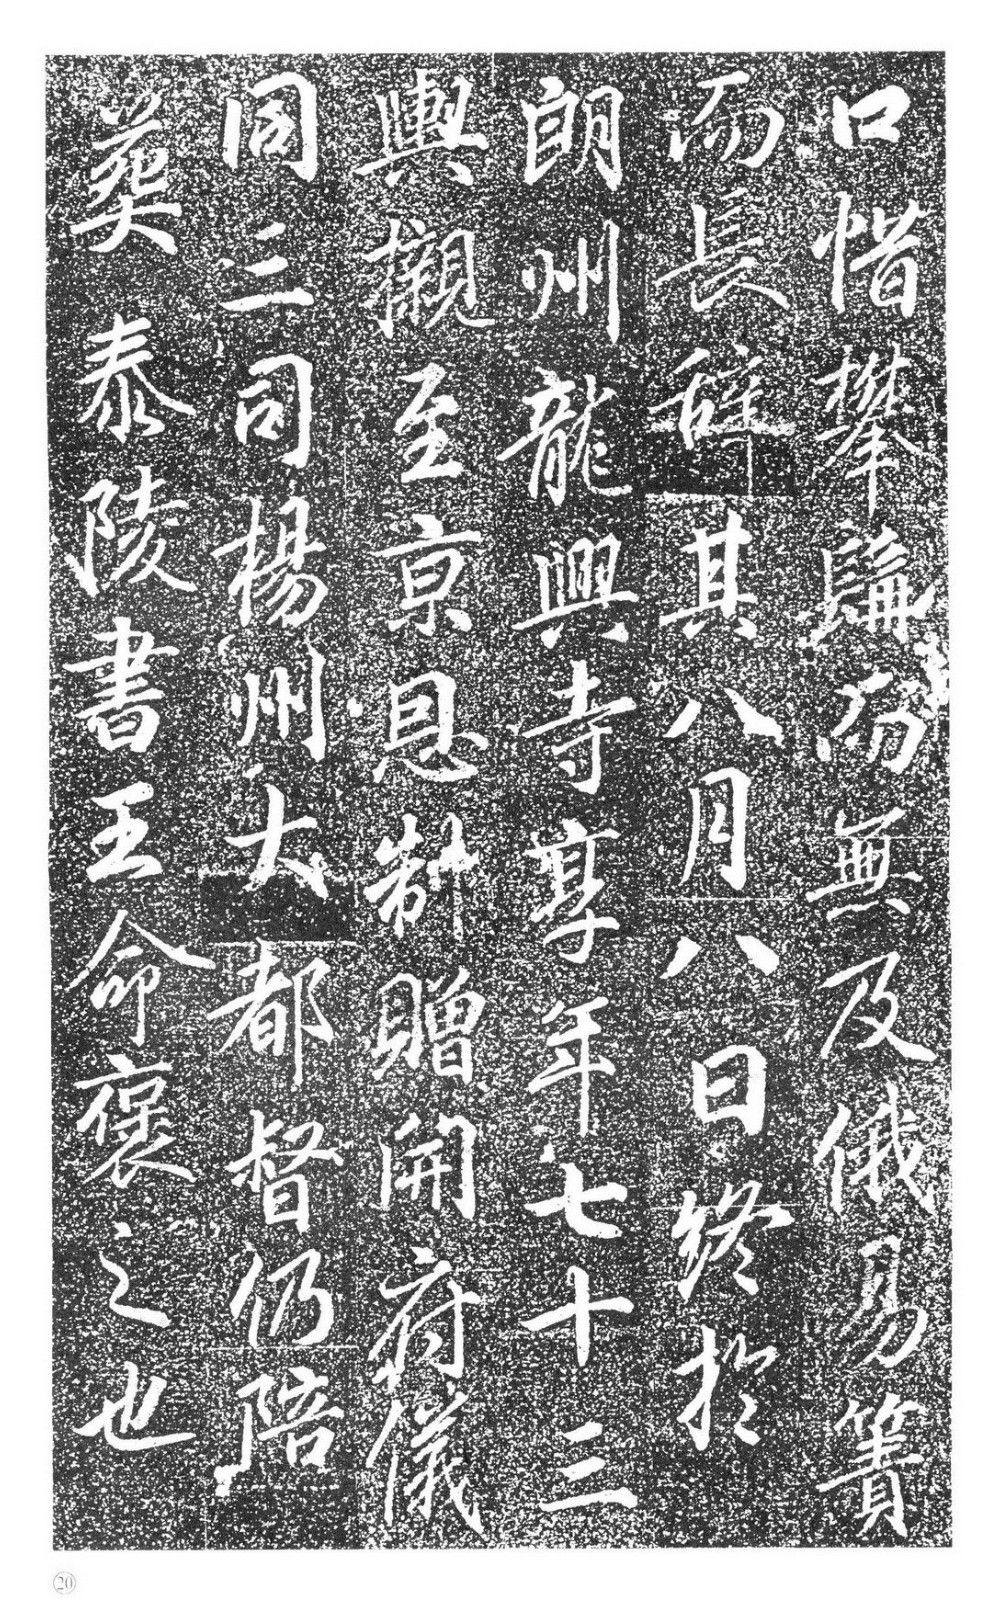 口惜攀髯而無及俄易簀
而長辭其八月八日終於
朗州龍興寺享年七十三
輿櫬至京恩制贈開府儀
同三司楊州大都督仍陪
葬泰陵書王命褒之也
⑳